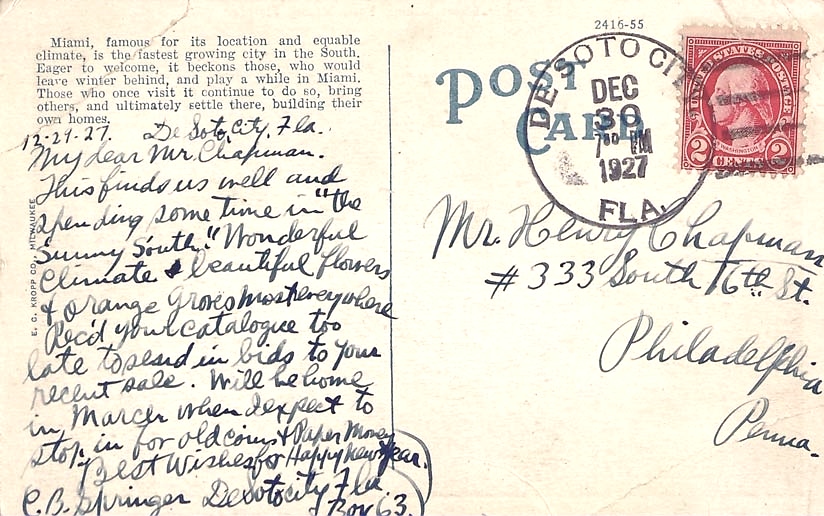 2416-55
Miami, famous for its location and equable
climate, is the fastest growing city in the South.
Eager to welcome, it beckons those, who would
leave winter behind, and play a while in Miami.
Those who once visit it continue to do so, bring
others, and ultimately settle there, building their
own homes.
12-29-27. De Soto City, Fla.
My dear Mr. Chapman.
This finds us well and
spending some time in "the
Sunny South." Wonderful
Climate & beautiful flowers
& orange Groves most everywhere
Rec'd your catalogue too
late to send in bids to your
recent sale. Will be home
in March when I expect to
stop in for old coins & Paper Money
Best Wishes for Happy New Year.
C.B. Springer De Soto City, Fla
Box 63.
E. C. KROPP CO., MILWAUKEE
POST
CARD
DE SOTO CITY
DEC
30
7 PM
1927
FLA.
UNITED STATES POSTAGE
WASHINGTON
2 CENTS 2
Mr. Henry Chapman
#333 South 16th St.
Philadelphia
Penna.